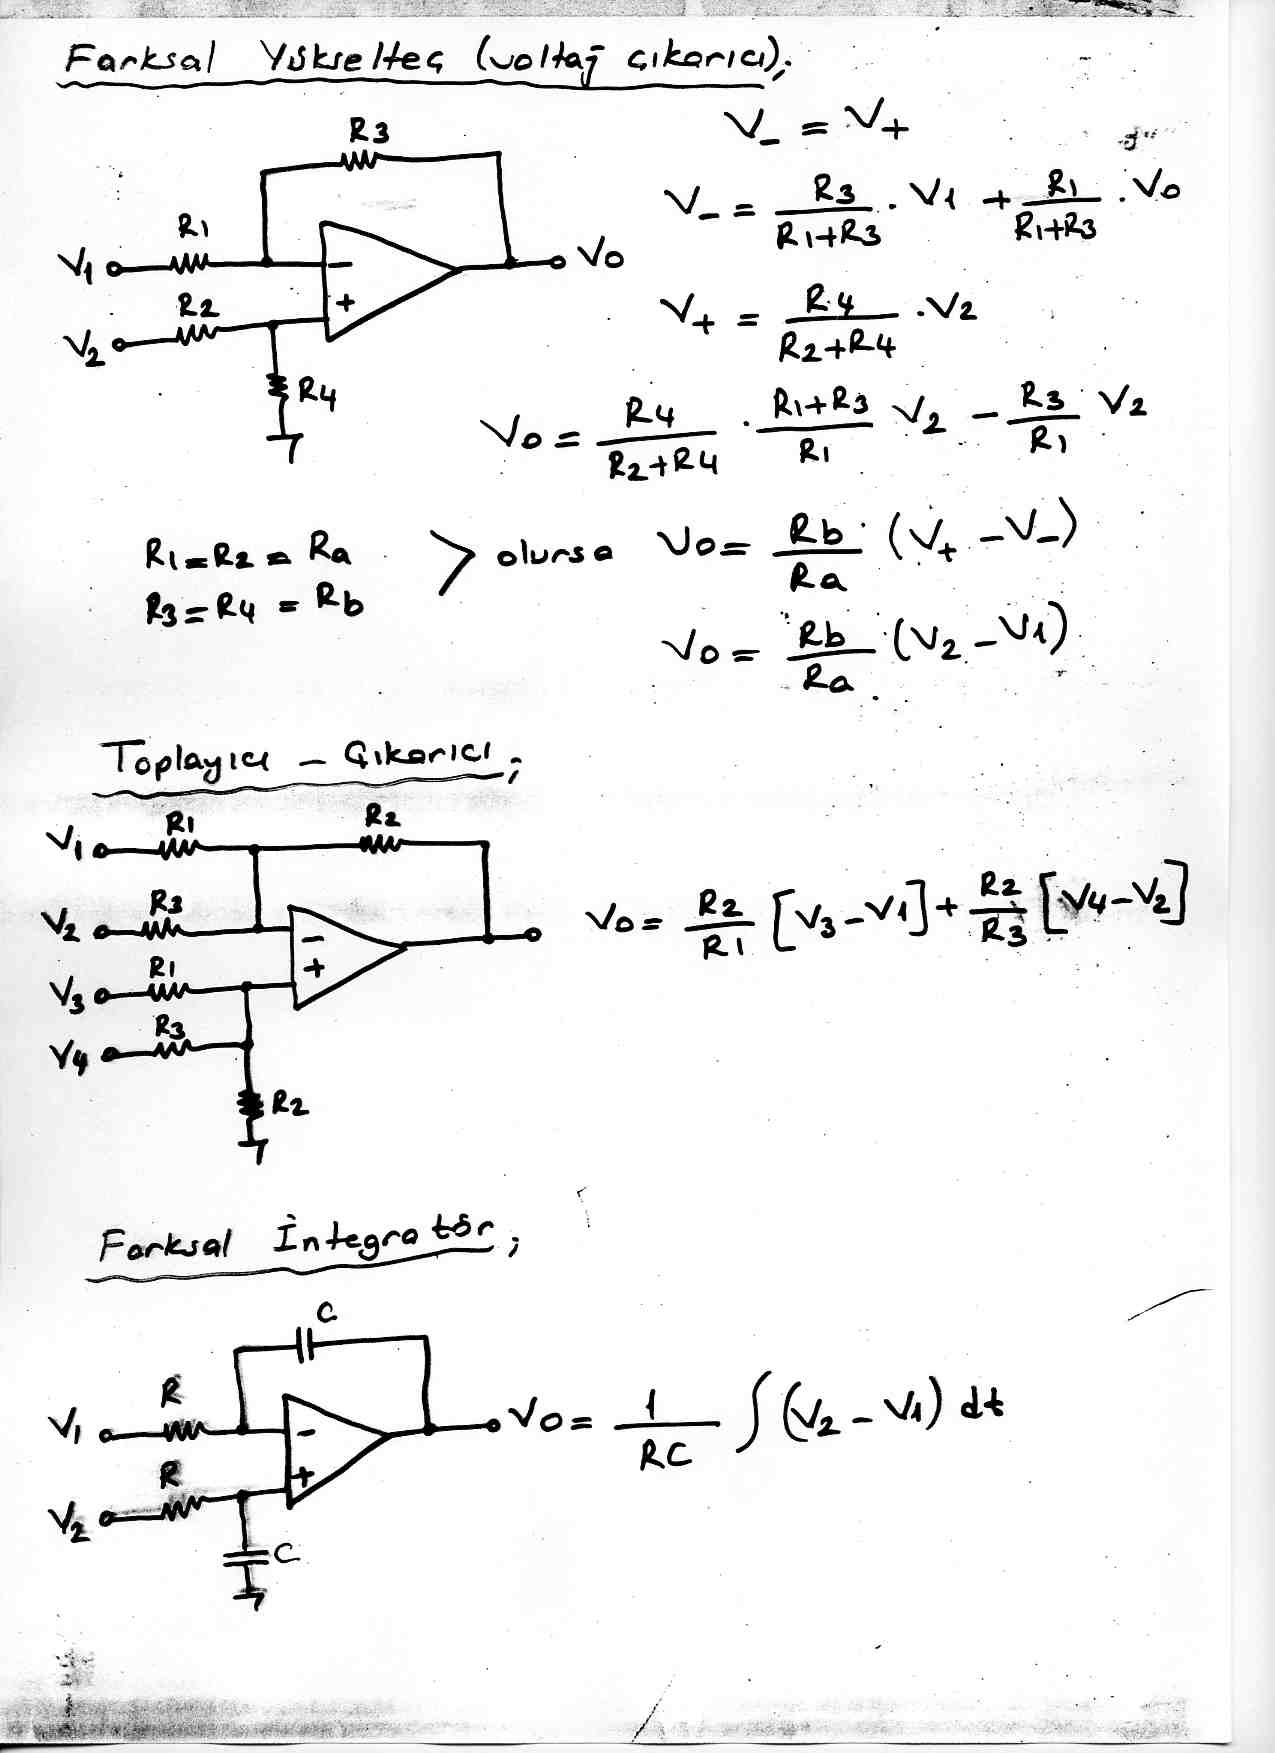 Farksal Yükselteç (voltaj çıkarıcı);
R3
R1
V1
R2
V2
R4
-
+
Vo
V_ = V+
V_ = R3/(R1+R3) . V1 + R1/(R1+R3) . Vo
V+ = R4/(R2+R4) . V2
Vo = R4/(R2+R4) . (R1+R3)/R1 V2 - R3/R1 V2
R1 = R2 = Ra
R3 = R4 = Rb
> olursa
Vo = Rb/Ra (V+ - V_)
Vo = Rb/Ra (V2 - V1)
Toplayıcı - Çıkarıcı;
V1 R1 R2
V2 R3
V3 R1
V4 R3
R2
-
+
Vo = R2/R1 [V3 - V1] + R2/R3 [V4 - V2]
Farksal İntegratör;
C
V1 R
V2 R
C
-
+
Vo = 1/RC ∫ (V2 - V1) dt